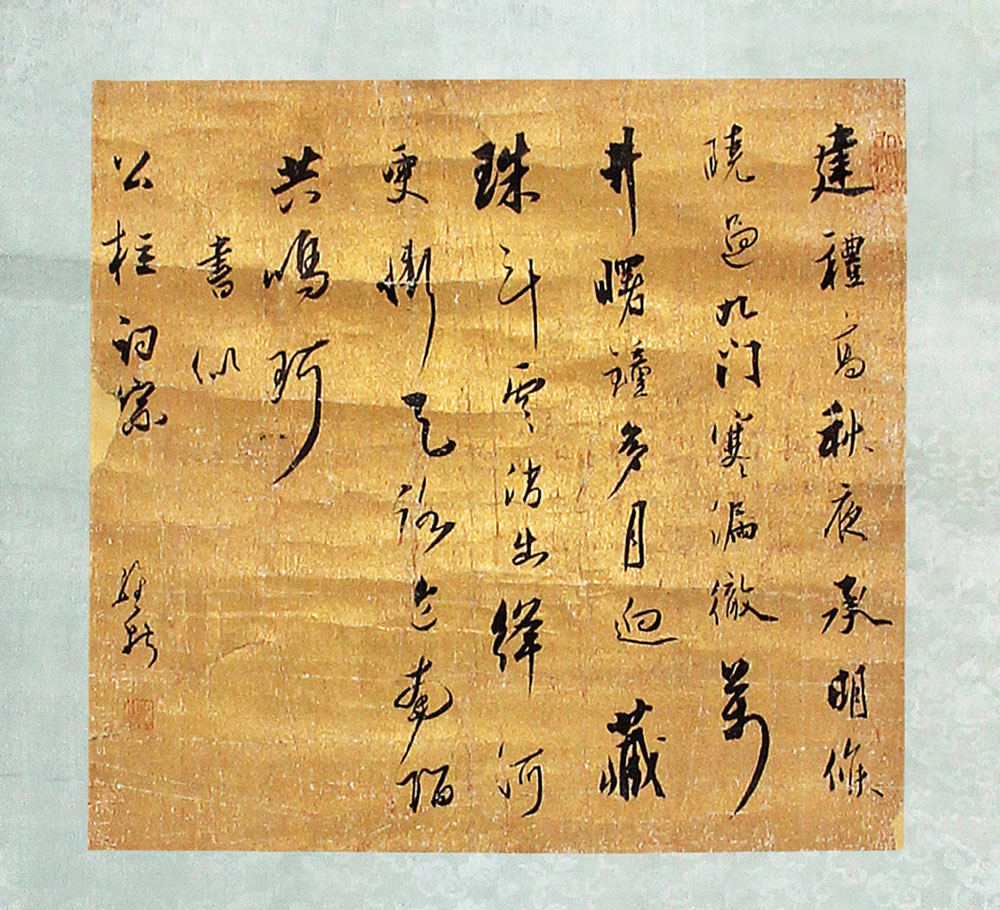 建禮高秋夜承明候
曉過九门寒漏徹萬
井曙鐘多月迥藏
珠斗雲消出絳河
更慚南陌
共鳴珂
書似
公柱詞宗